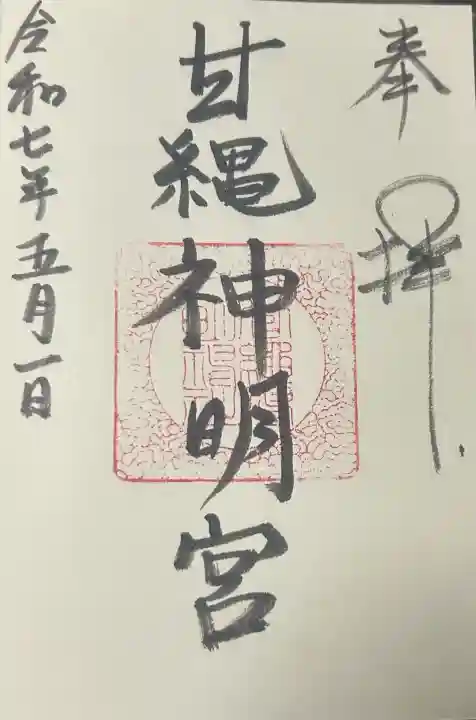 奉拝
甘縄神明宮
令和七年五月一日